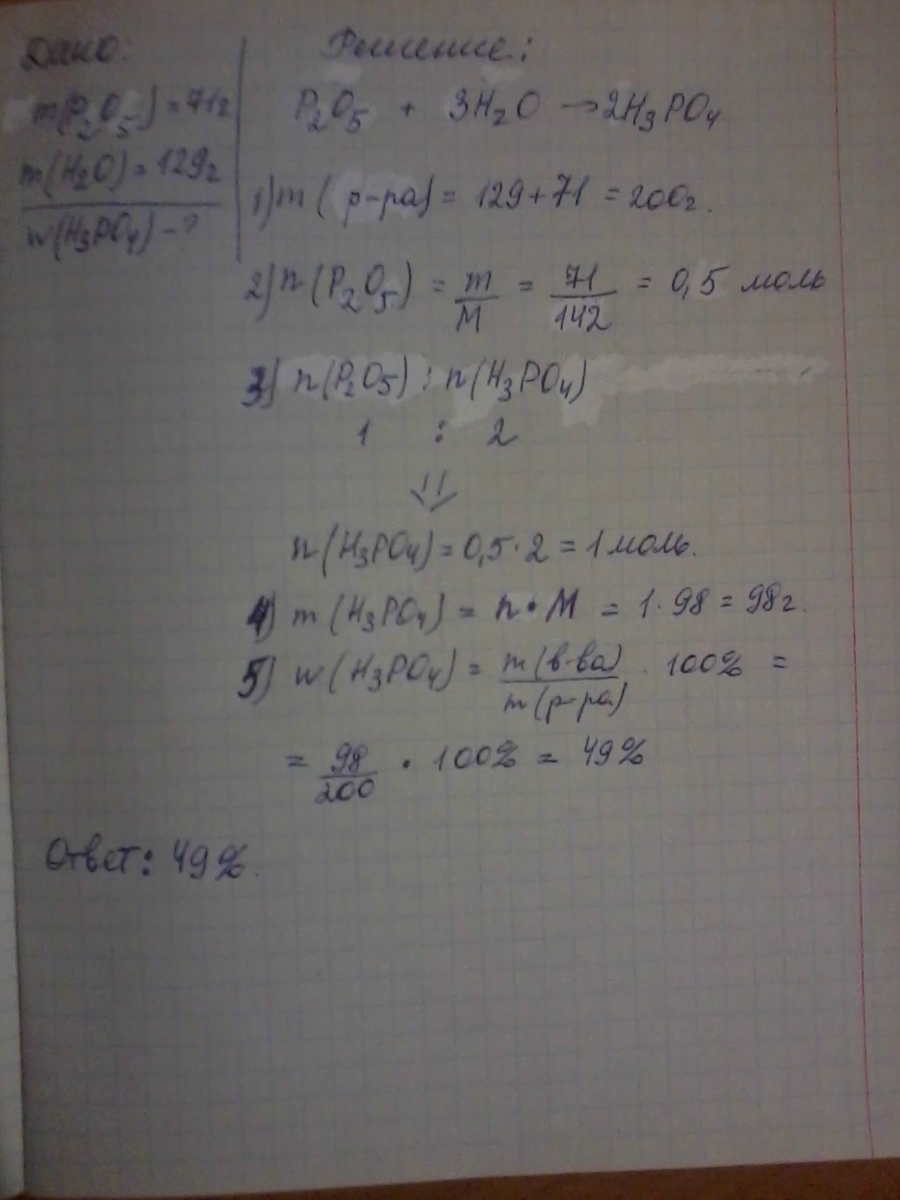 Дано:
m(P₂O₅) = 71г
m(H₂O) = 129г
w(H₃PO₄) - ?
Решение:
P₂O₅ + 3H₂O → 2H₃PO₄
1) m( р-ра) = 129+71 = 200г.
2) n(P₂O₅) = m/M = 71/142 = 0,5 моль
3) n(P₂O₅) : n(H₃PO₄)
1 : 2
⇓
n(H₃PO₄) = 0,5·2 = 1 моль.
4) m(H₃PO₄) = n·M = 1·98 = 98г.
5) w(H₃PO₄) = m(в-ва)/m(р-ра) · 100% =
= 98/200 · 100% = 49%
Ответ: 49%.